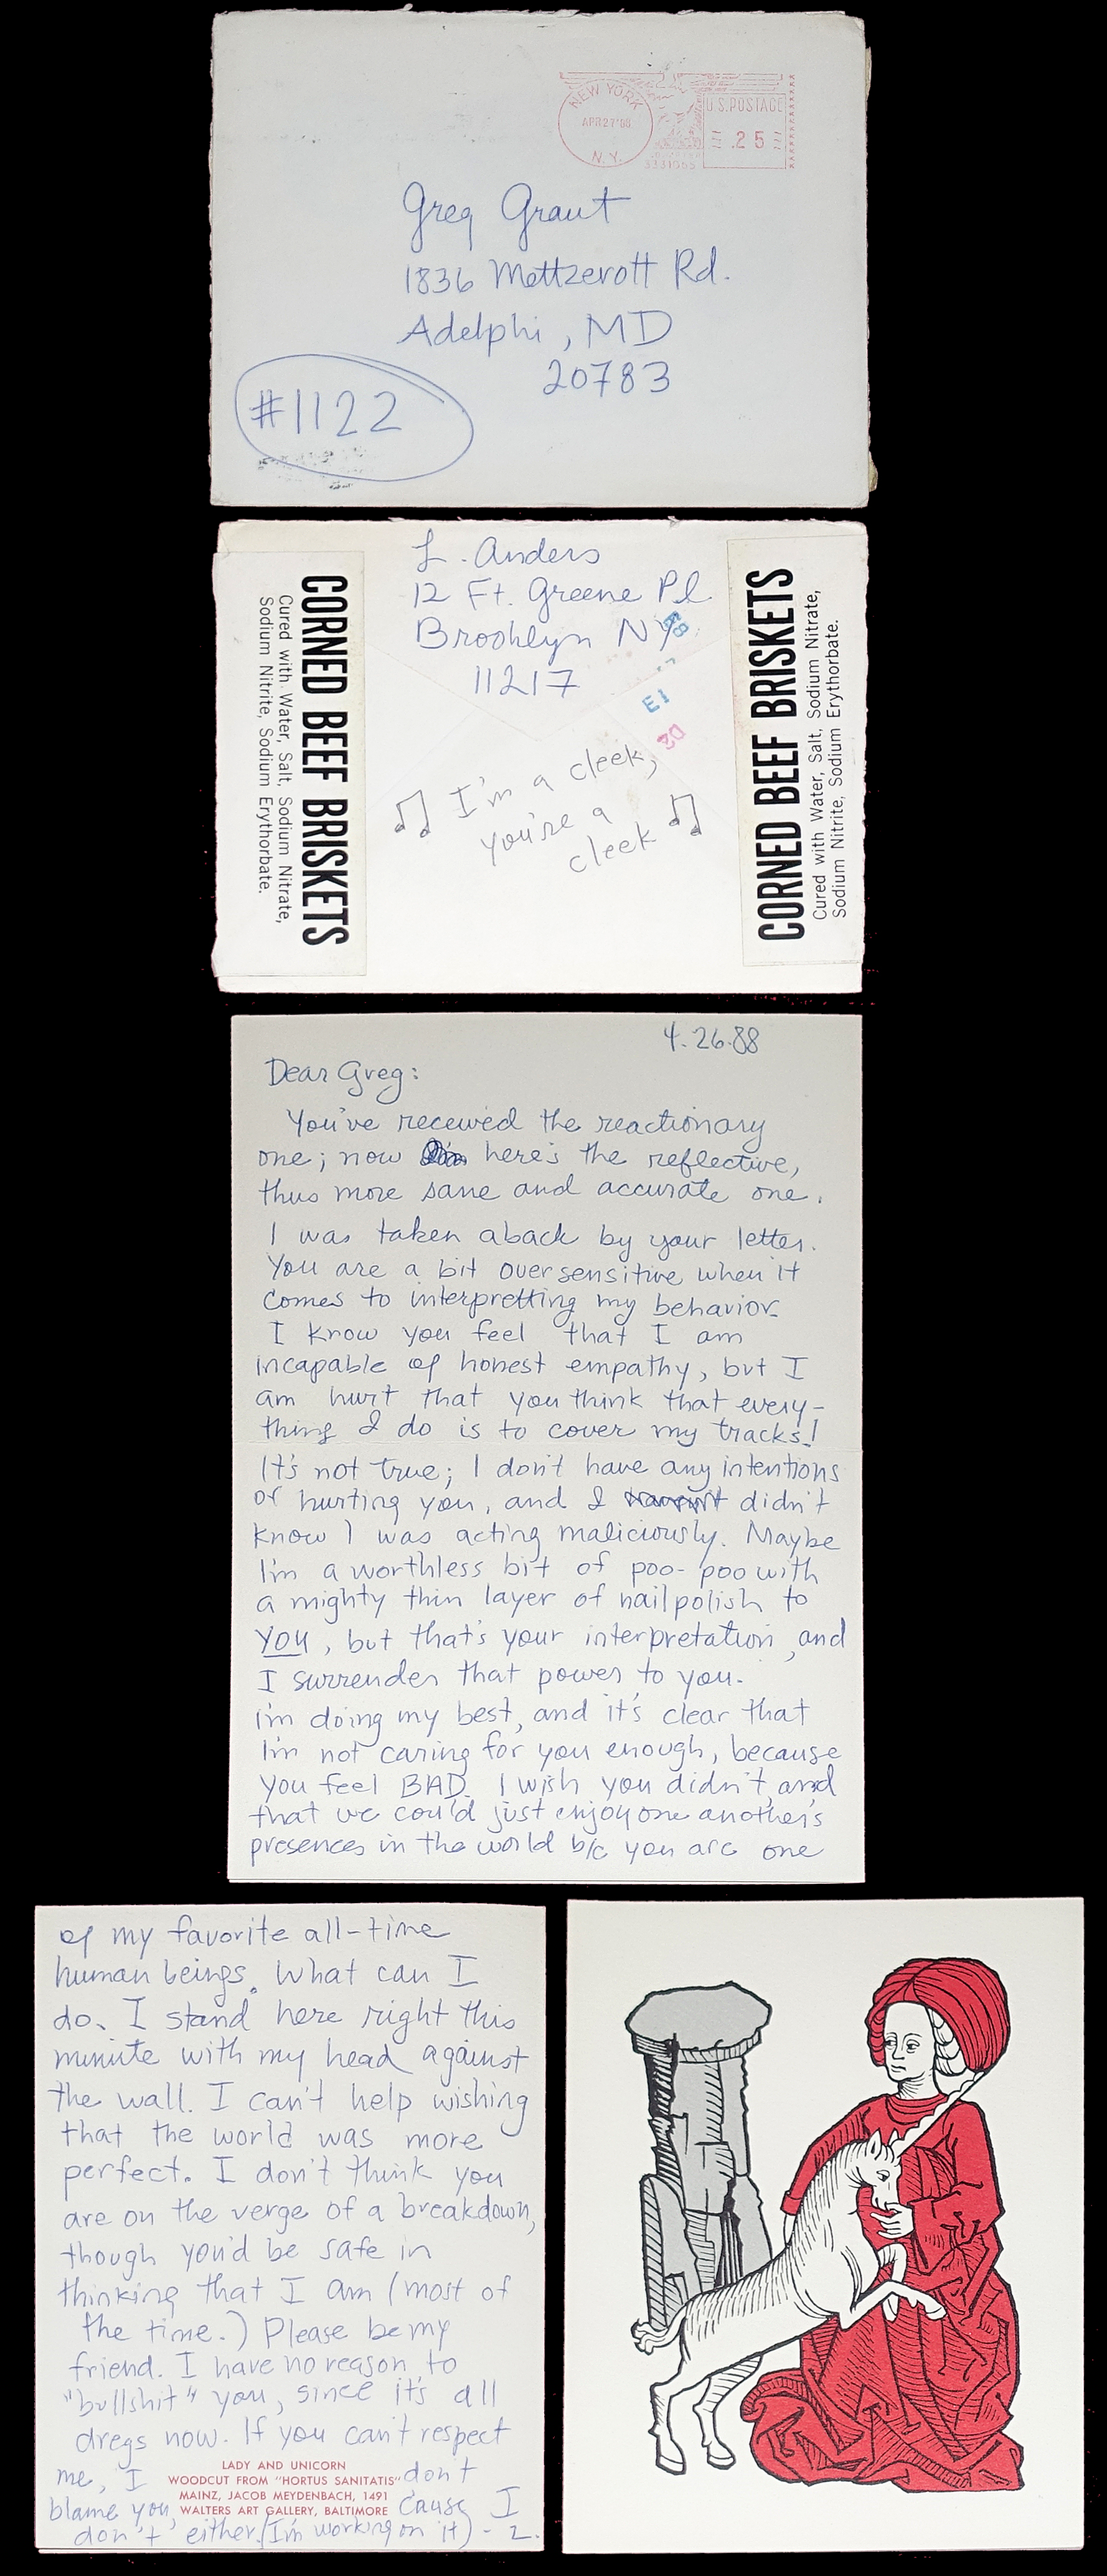 NEW YORK
APR27'88
N.Y.
U.S.POSTAGE
.25
Greg Grant
1836 Mettzerott Rd.
Adelphi, MD
20783
#1122
L. Anders
12 Ft. Greene Pl
Brooklyn NY
11217
E1
D2
CORNED BEEF BRISKETS
Cured with Water, Salt, Sodium Nitrate,
Sodium Nitrite, Sodium Erythorbate.
CORNED BEEF BRISKETS
Cured with Water, Salt, Sodium Nitrate,
Sodium Nitrite, Sodium Erythorbate.
I'm a cleek,
you're a
cleek
4.26.88
Dear Greg:
You've received the reactionary
one; now here's the reflective,
thus more sane and accurate one.
I was taken aback by your letter.
You are a bit oversensitive when it
comes to interpretting my behavior.
I know you feel that I am
incapable of honest empathy, but I
am hurt that you think that every-
thing I do is to cover my tracks!
It's not true; I don't have any intentions
of hurting you, and I didn't
know I was acting maliciously. Maybe
I'm a worthless bit of poo-poo with
a mighty thin layer of nailpolish to
you, but that's your interpretation, and
I surrender that power to you.
I'm doing my best, and it's clear that
I'm not caring for you enough, because
you feel BAD. I wish you didn't, and
that we could just enjoy one another's
presences in the world b/c you are one
of my favorite all-time
human beings. What can I
do. I stand here right this
minute with my head against
the wall. I can't help wishing
that the world was more
perfect. I don't think you
are on the verge of a breakdown,
though you'd be safe in
thinking that I am (most of
the time.) Please be my
friend. I have no reason to
"bullshit" you, since it's all
dregs now. If you can't respect
me, I don't
blame you, cause I
don't either. (I'm working on it) - L.
LADY AND UNICORN
WOODCUT FROM "HORTUS SANITATIS"
MAINZ, JACOB MEYDENBACH, 1491
WALTERS ART GALLERY, BALTIMORE